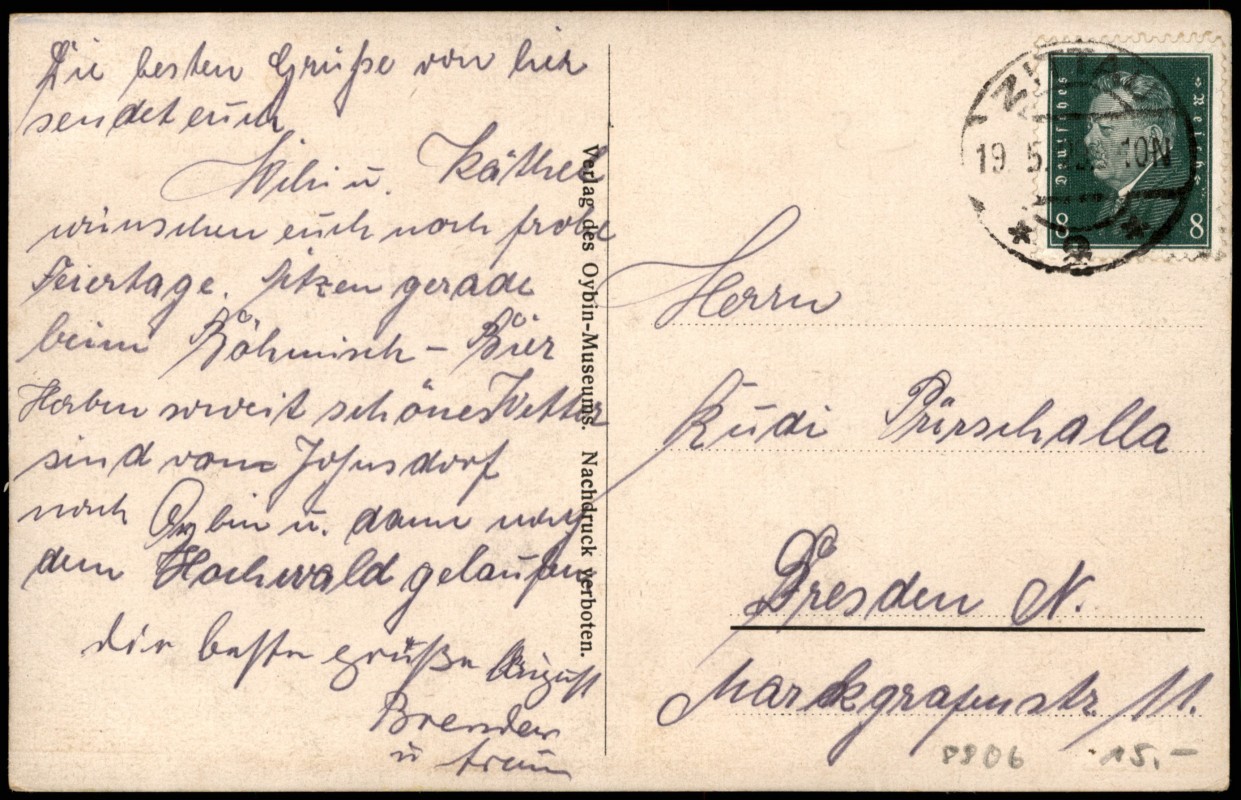 Die besten Grüße von hier
sendet euch
u. Käthel
wünschen euch noch frohe
Feiertage. sitzen gerade
beim Böhmisch - Bier
Haben soweit schönes Wetter
sind vom Johnsdorf
nach Oybin u. dann nach
dem Hochwald gelaufen
die beste grüße August
u
Verlag des Oybin-Museums. Nachdruck verboten.
ZITTAU
19. 5. 10N
* e *
Deutsches Reich
8 8
Herrn
Rudi Pürschalla
Dresden N.
Markgrafenstr. 11.
8906 15.-